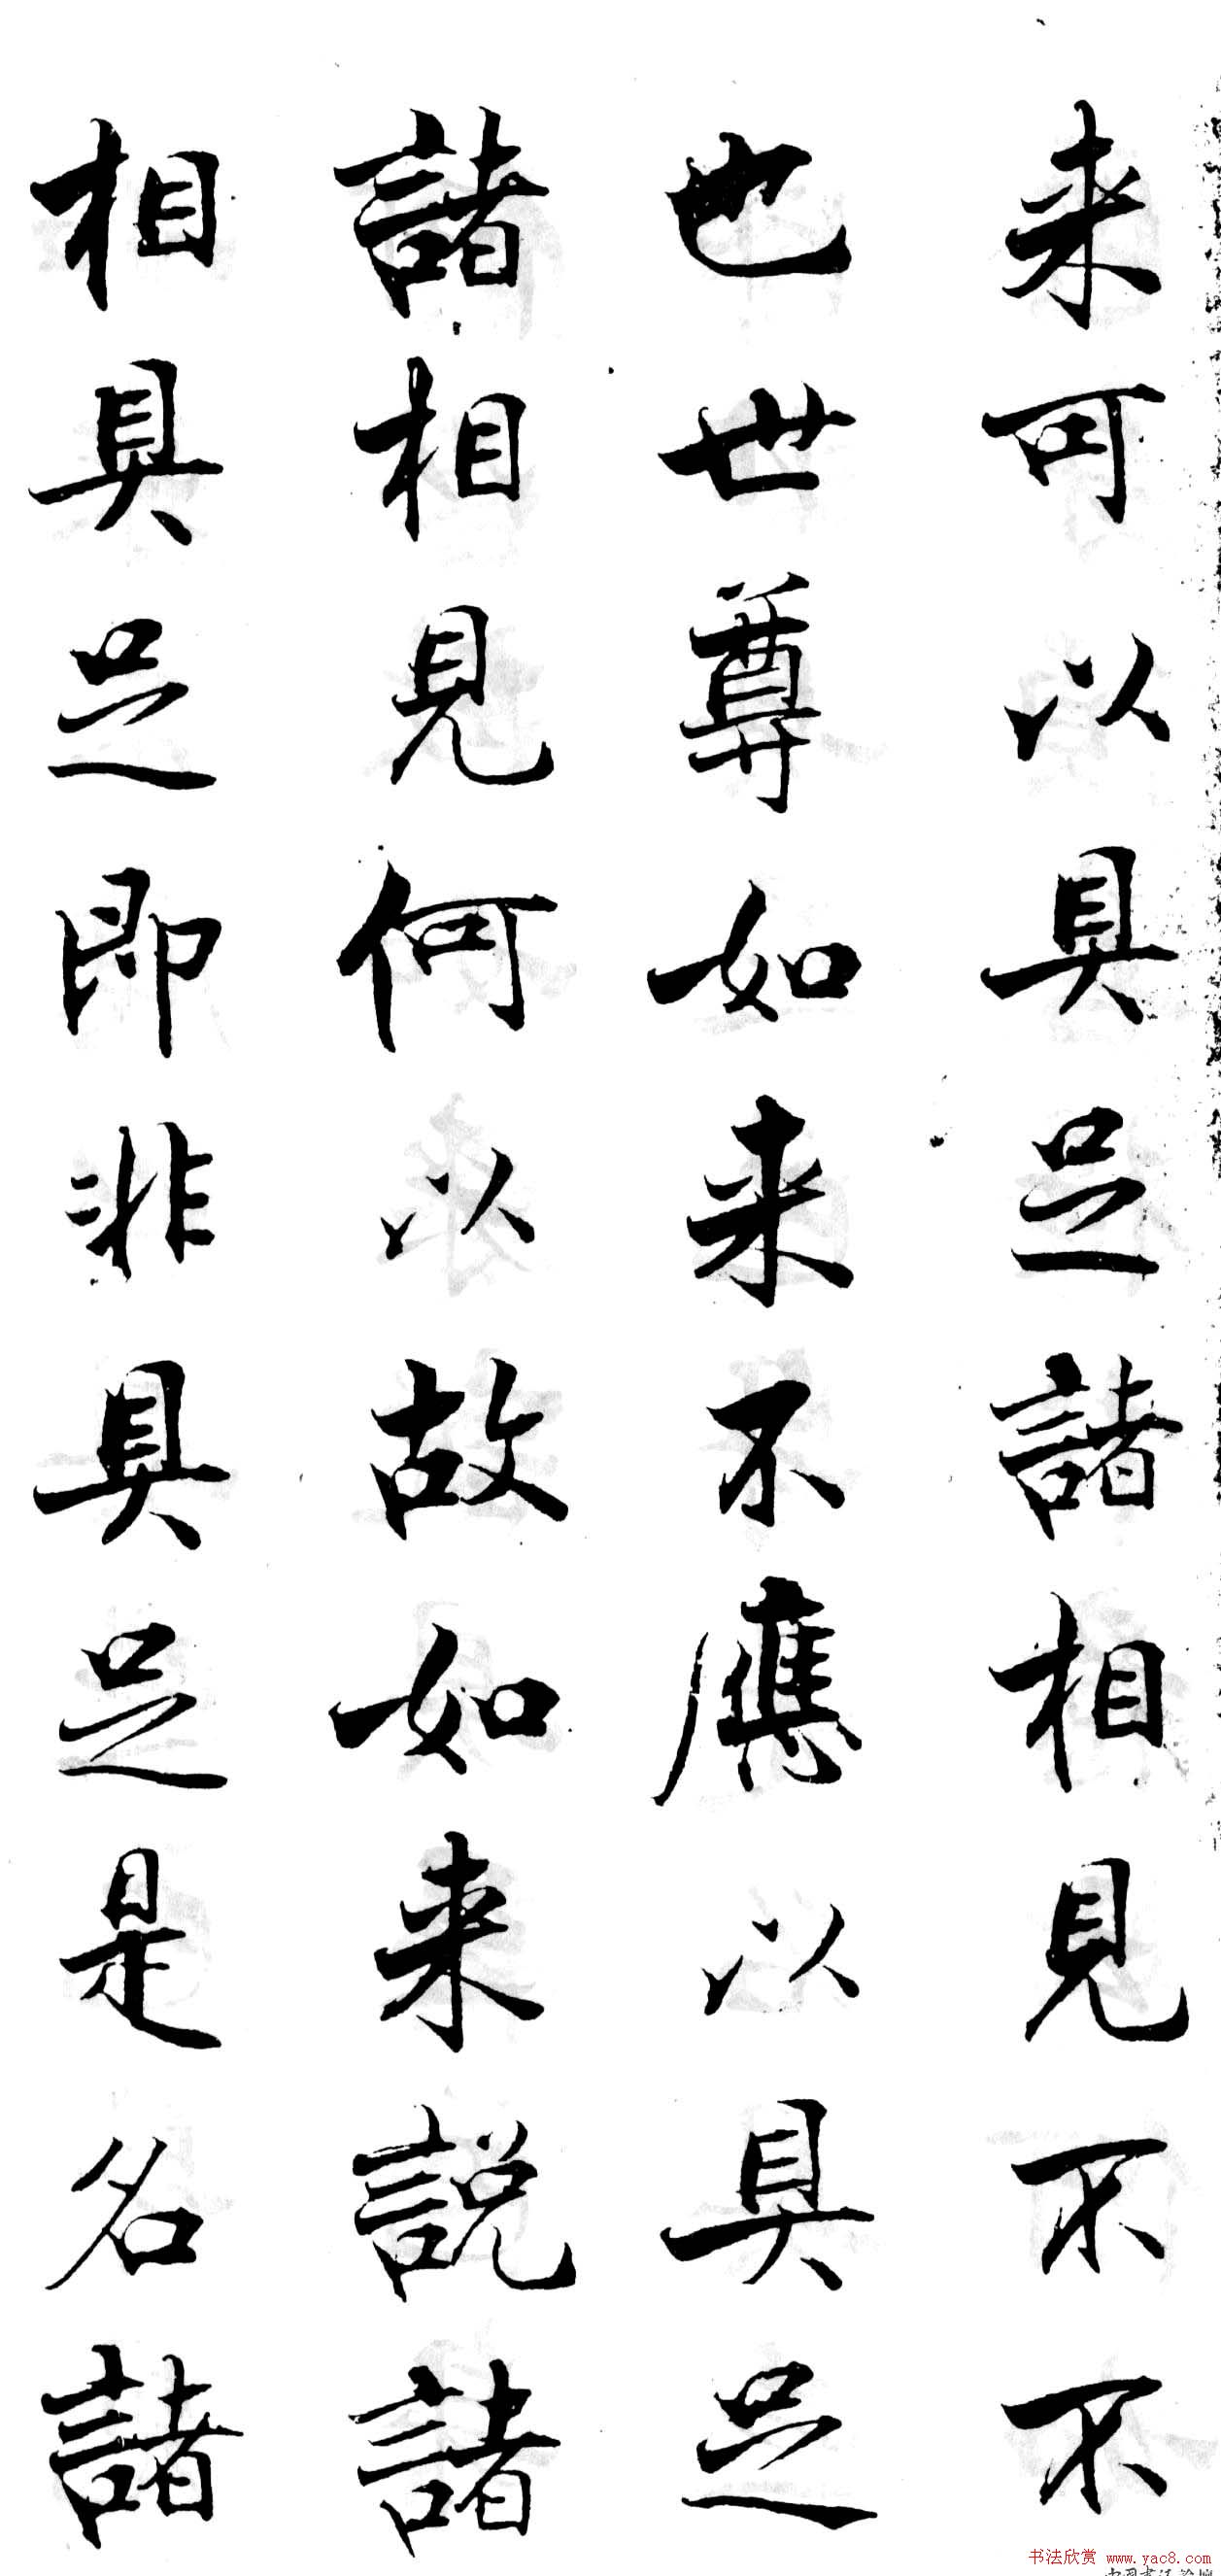 来可以具足諸相見不不
也世尊如来不應以具足
諸相見何以故如来説諸
相具足即非具足是名諸
书法欣赏 www.yac8.com